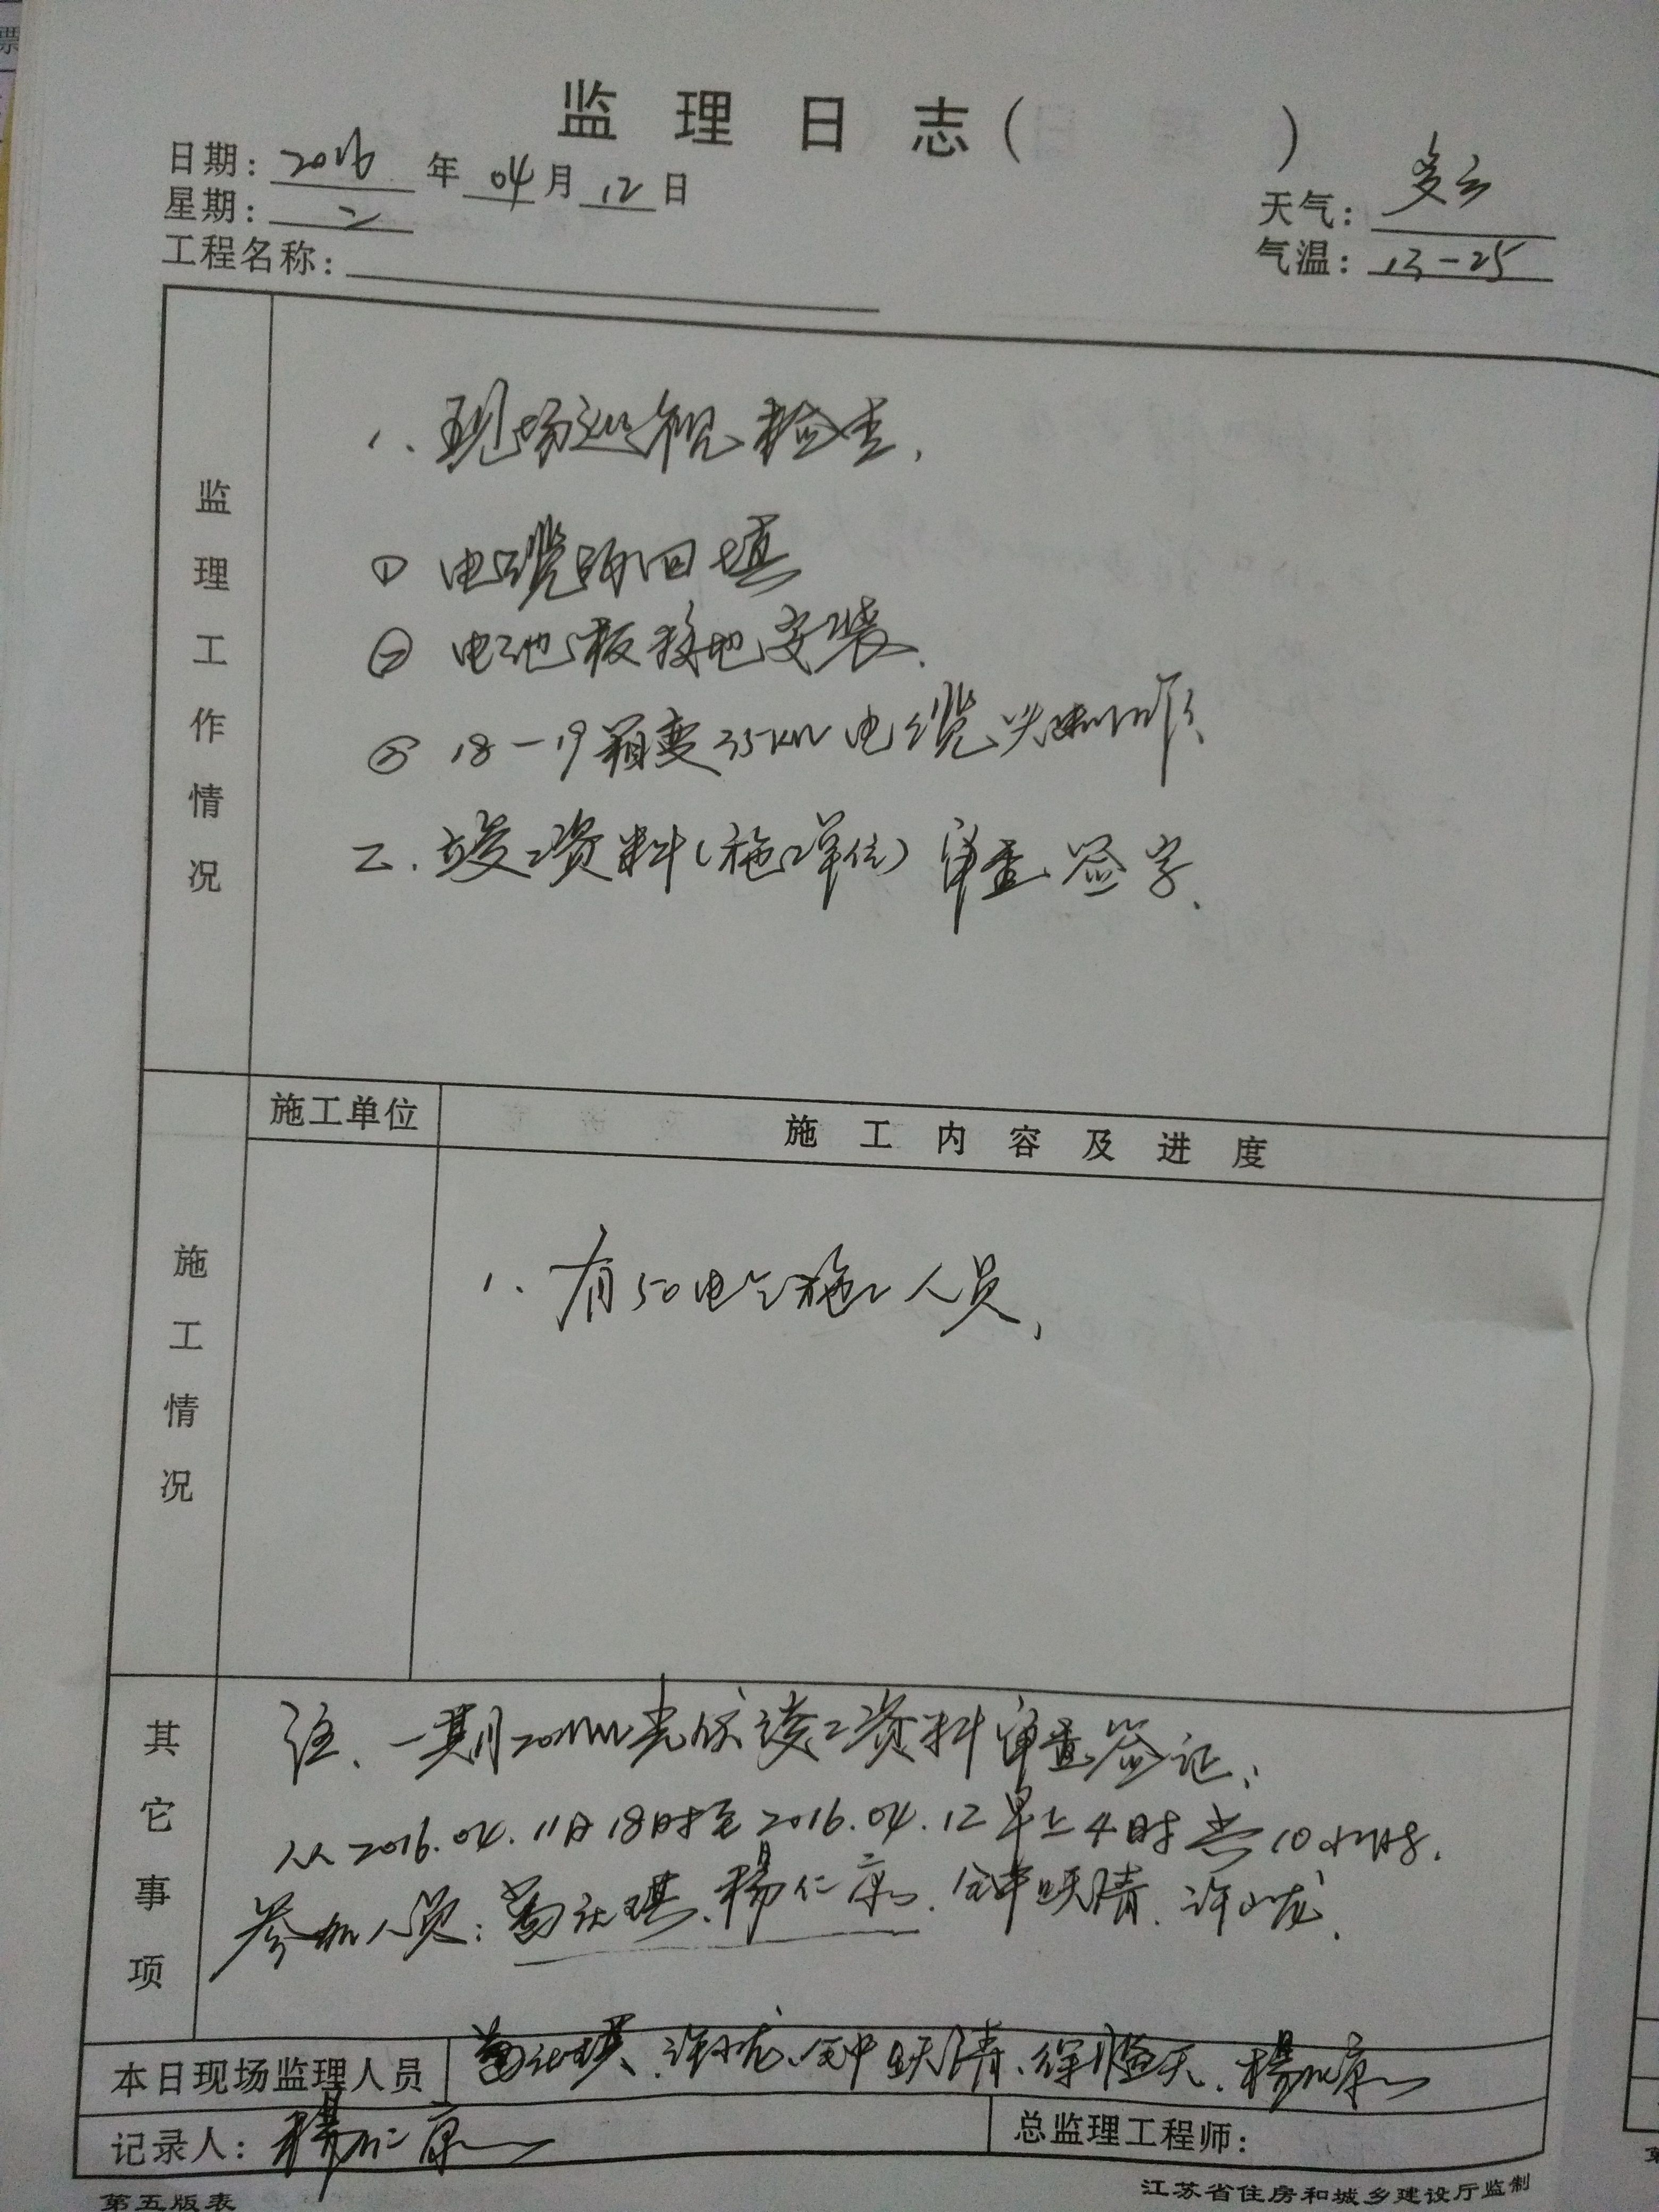 监理日志(      )
日期: 2016 年 04 月 12 日
天气: 多云
星期: 二
气温: 13-25
工程名称:
监理工作情况
一、现场巡视检查,
① 电缆沟回填
② 电池板接地安装.
③ 18-19箱变35KV电缆头制作
二.竣工资料(施工单位)审查签字.
施工单位
施工内容及进度
施工情况
1、有50电气施工人员,
其它事项
注、一期20MW光伏竣工资料审查签证:
从2016.04.11日18时至2016.04.12早上4时共10小时.
参加人员: 杨仁康. 钟跃清. 许小龙.
本日现场监理人员 许小龙、钟跃清、徐 天、杨仁康
记录人: 杨仁康
总监理工程师:
第五版表
江苏省住房和城乡建设厅监制